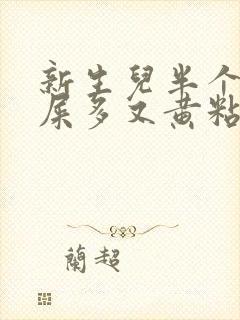 新生兒半个
屎多又黄粘
蘭超